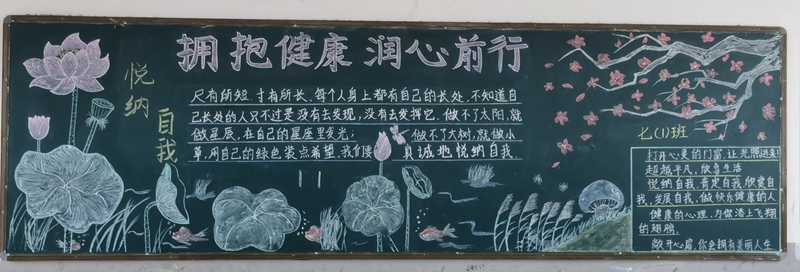 拥抱健康 润心前行
悦纳
自我
尺有所短，寸有所长，每个人身上都有自己的长处，不知道自
己长处的人只不过是没有去发现，没有去发挥它，做不了太阳，就
做星辰，在自己的星座里发光；做不了大树，就做小
草，用自己的绿色装点希望，我们要真诚地悦纳自我。
七(1)班
打开心灵的门窗，让光照进来！
超越平凡，欣喜生活
悦纳自我，肯定自我，欣赏自
我，发展自我，做快乐健康的人
健康的心理，为你添上飞翔
的翅膀。
敞开心扉，你会拥有美丽人生